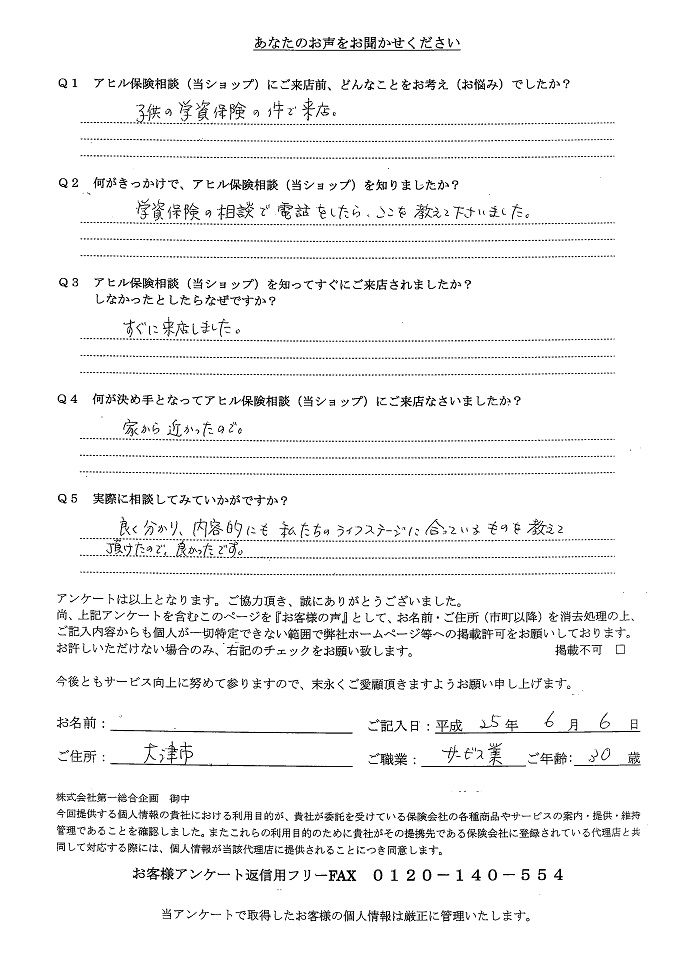 あなたのお声をお聞かせください
Q1 アヒル保険相談（当ショップ）にご来店前、どんなことをお考え（お悩み）でしたか？
子供の学資保険の件で来店。
Q2 何がきっかけで、アヒル保険相談（当ショップ）を知りましたか？
学資保険の相談で電話をしたら、ここを教えて下さいました。
Q3 アヒル保険相談（当ショップ）を知ってすぐにご来店されましたか？
しなかったとしたらなぜですか？
すぐに来店しました。
Q4 何が決め手となってアヒル保険相談（当ショップ）にご来店なさいましたか？
家から近かったので。
Q5 実際に相談してみていかがですか？
良く分かり、内容的にも私たちのライフステージに合っているものを教えて
頂けたので、良かったです。
アンケートは以上となります。ご協力頂き、誠にありがとうございました。
尚、上記アンケートを含むこのページを『お客様の声』として、お名前・ご住所（市町以降）を消去処理の上、
ご記入内容からも個人が一切特定できない範囲で弊社ホームページ等への掲載許可をお願いしております。
お許しいただけない場合のみ、右記のチェックをお願い致します。 掲載不可 □
今後ともサービス向上に努めて参りますので、末永くご愛顧頂きますようお願い申し上げます。
お名前： ご記入日：平成 25年 6月 6日
ご住所： 大津市 ご職業： サービス業 ご年齢： 30 歳
株式会社第一総合企画 御中
今回提供する個人情報の貴社における利用目的が、貴社が委託を受けている保険会社の各種商品やサービスの案内・提供・維持
管理であることを確認しました。またこれらの利用目的のために貴社がその提携先である保険会社に登録されている代理店と共
同して対応する際には、個人情報が当該代理店に提供されることにつき同意します。
お客様アンケート返信用フリーFAX 0120－140－554
当アンケートで取得したお客様の個人情報は厳正に管理いたします。